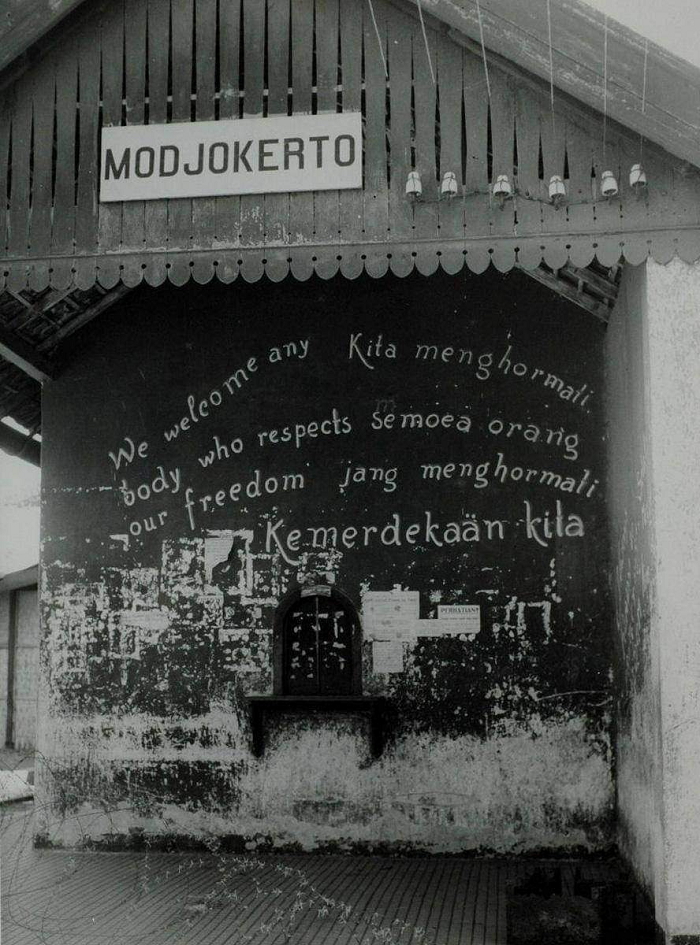 MODJOKERTO
We welcome any
body who respects
our freedom
Kita menghormati.
semoea orang
jang menghormati
Kemerdekaän kita
PERHATIAN!